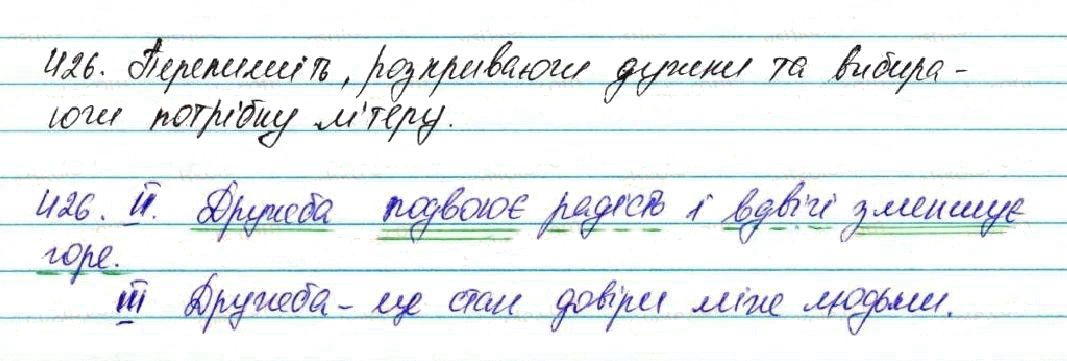 426. Перепишіть, розкриваючи дужки та вибира-
ючи потрібну літеру.
426. II. Дружба подвоює радість і вдвічі зменшує
горе.
III Дружба – це стан довіри між людьми.